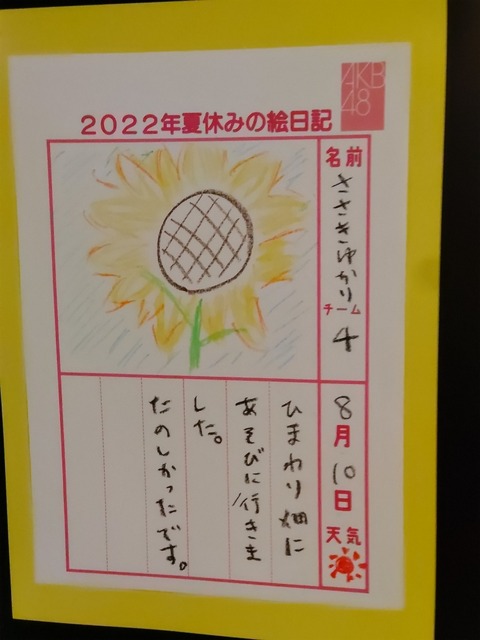 AKB
48
2022年夏休みの絵日記
名前
ささきゆかり
チーム
4
8月10日
天気
ひまわり畑に
あそびに行きま
した。
たのしかったです。